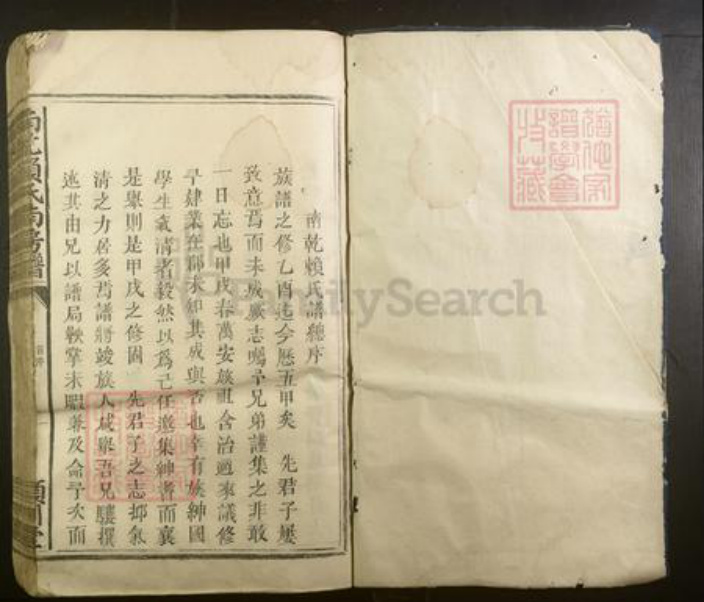 南乾賴氏譜總序
族譜之修乙酉迄今歷五甲矣 先君子屢
致意焉而未成厥志囑予兄弟謹集之非敢
一日忘也甲戌春萬安族祖含治過來議修
予肄業在郡未知其成與否也幸有族紳國
學生氣清者毅然以為己任邀集紳耆而襄
是舉則是甲戌之修固 先君子之志抑氣
清之力居多焉譜將竣族人咸舉吾兄驥撰
述其由兄以譜局鞅掌未暇兼及命予次而
南乾賴氏南房譜
潁川堂
FamilySearch